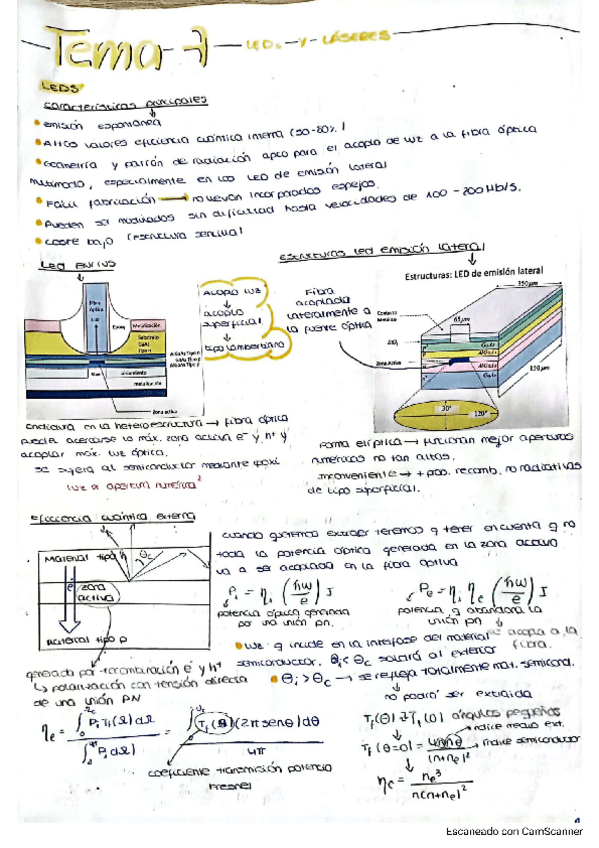 Tema - 7 — LEDs — Y — LÁSERES
LEDS
características principales
• emisión espontánea
• Altos valores eficiencia cuántica interna (50-80%)
• Geometría y patrón de radiación apto para el acoplo de luz a la fibra óptica
multimodo, especialmente en los LED de emisión lateral
• Fácil fabricación → no llevan incorporados espejos.
• Pueden ser modulados sin dificultad hasta velocidades de 100 - 200 Mb/s.
• coste bajo (estructura sencilla)
Led Burrus
estructuras led emisión lateral
Fibra
óptica
Luz
Epoxy
Metalización
Substrato
GaAs
Tipo n
AlGaAs Tipo n
AlGaAs Tipo p
AlGaAs Tipo p
Aislamiento
metalización
Zona activa
Acoplo luz
↓
acoplo
superficial
↓
tipo lambertiano
Fibra
acoplada
lateralmente a
la fuente óptica
Estructuras: LED de emisión lateral
350 μm
Contacto
Metálico
65 μm
SiO₂
Zona Activa
GaAs
AlGaAs
AlGaAs
GaAs
150 μm
30°
120°
en la heteroestructura → fibra óptica
puede acercarse lo máx. zona activa e⁻ y h⁺ y
acoplar máx. luz óptica.
se sujeta al semiconductor mediante epoxi
luz α apertura numérica²
Forma elíptica → funcionan mejor aperturas
numéricas no tan altas.
inconveniente → + prob. recomb. no radiativas
de tipo superficial.
Eficiencia cuántica externa
Material tipo n
θc
zona
activa
Material tipo p
generada por recombinación e⁻ y h⁺
↳ polarización con tensión directa
de una unión PN
cuando queremos extraer tenemos q tener en cuenta q no
toda la potencia óptica generada en la zona activa
va a ser acoplada en la fibra óptica
Pi = ηi (ħω/e) I
Pe = ηi ηe (ħω/e) I
potencia óptica generada
por una unión pn.
potencia q abandona la
unión pn
→ acopla a la
fibra.
• luz q incide en la interfase del material
semiconductor, θi < θc saldrá al exterior
• θi > θc → se refleja totalmente mat. semicond.
↓
no podrá ser extraída
ηe = ∫₀ Pi Tf(Ω) dΩ / ∫₀ Pi dΩ = ∫₀ Tf(θ) (2π senθ) dθ / 4π
coeficiente transmisión potencia
Fresnel
Tf(θ) ≈ Tf(0) ángulos pequeños
Tf(θ=0) = 4n ne / (n+ne)²
→ índice medio ext.
→ índice semiconductor
ηe = ne³ / n(n+ne)²
Escaneado con CamScanner